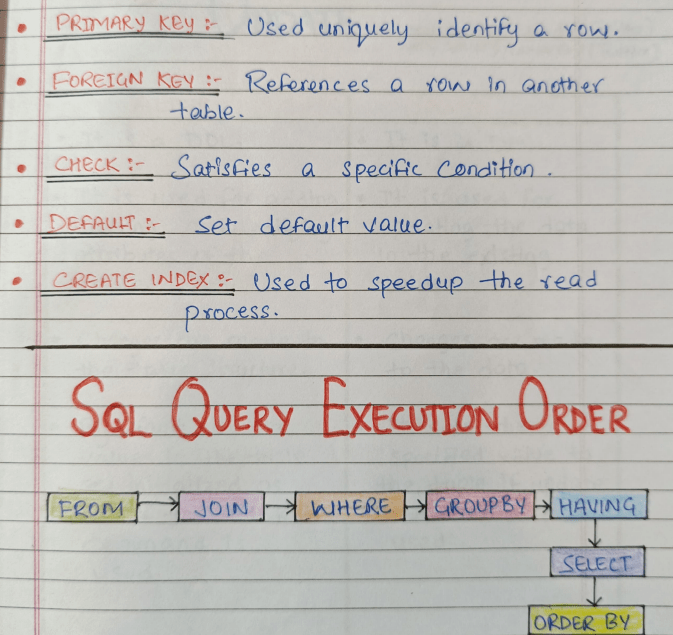 • PRIMARY KEY :- Used uniquely identify a row.
• FOREIGN KEY :- References a row in another
table.
• CHECK :- Satisfies a specific condition.
• DEFAULT :- Set default value.
• CREATE INDEX :- Used to speedup the read
process.
SQL QUERY EXECUTION ORDER
FROM → JOIN → WHERE → GROUPBY → HAVING
SELECT
ORDER BY